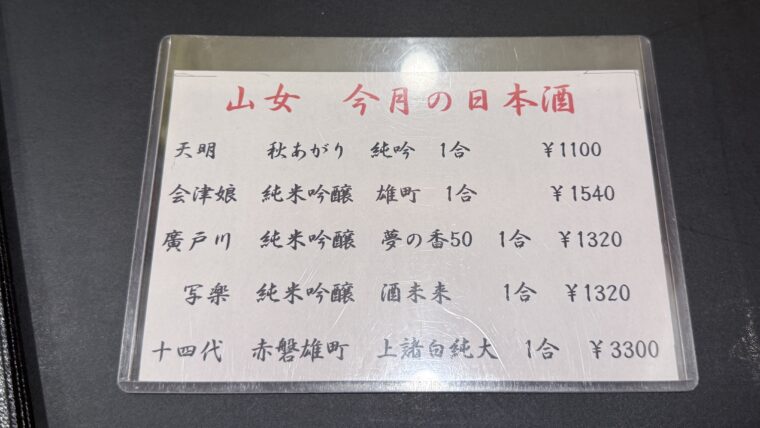 山女 今月の日本酒
天明 秋あがり 純吟 1合 ¥1100
会津娘 純米吟醸 雄町 1合 ¥1540
廣戸川 純米吟醸 夢の香50 1合 ¥1320
写楽 純米吟醸 酒未来 1合 ¥1320
十四代 赤磐雄町 上諸白純大 1合 ¥3300